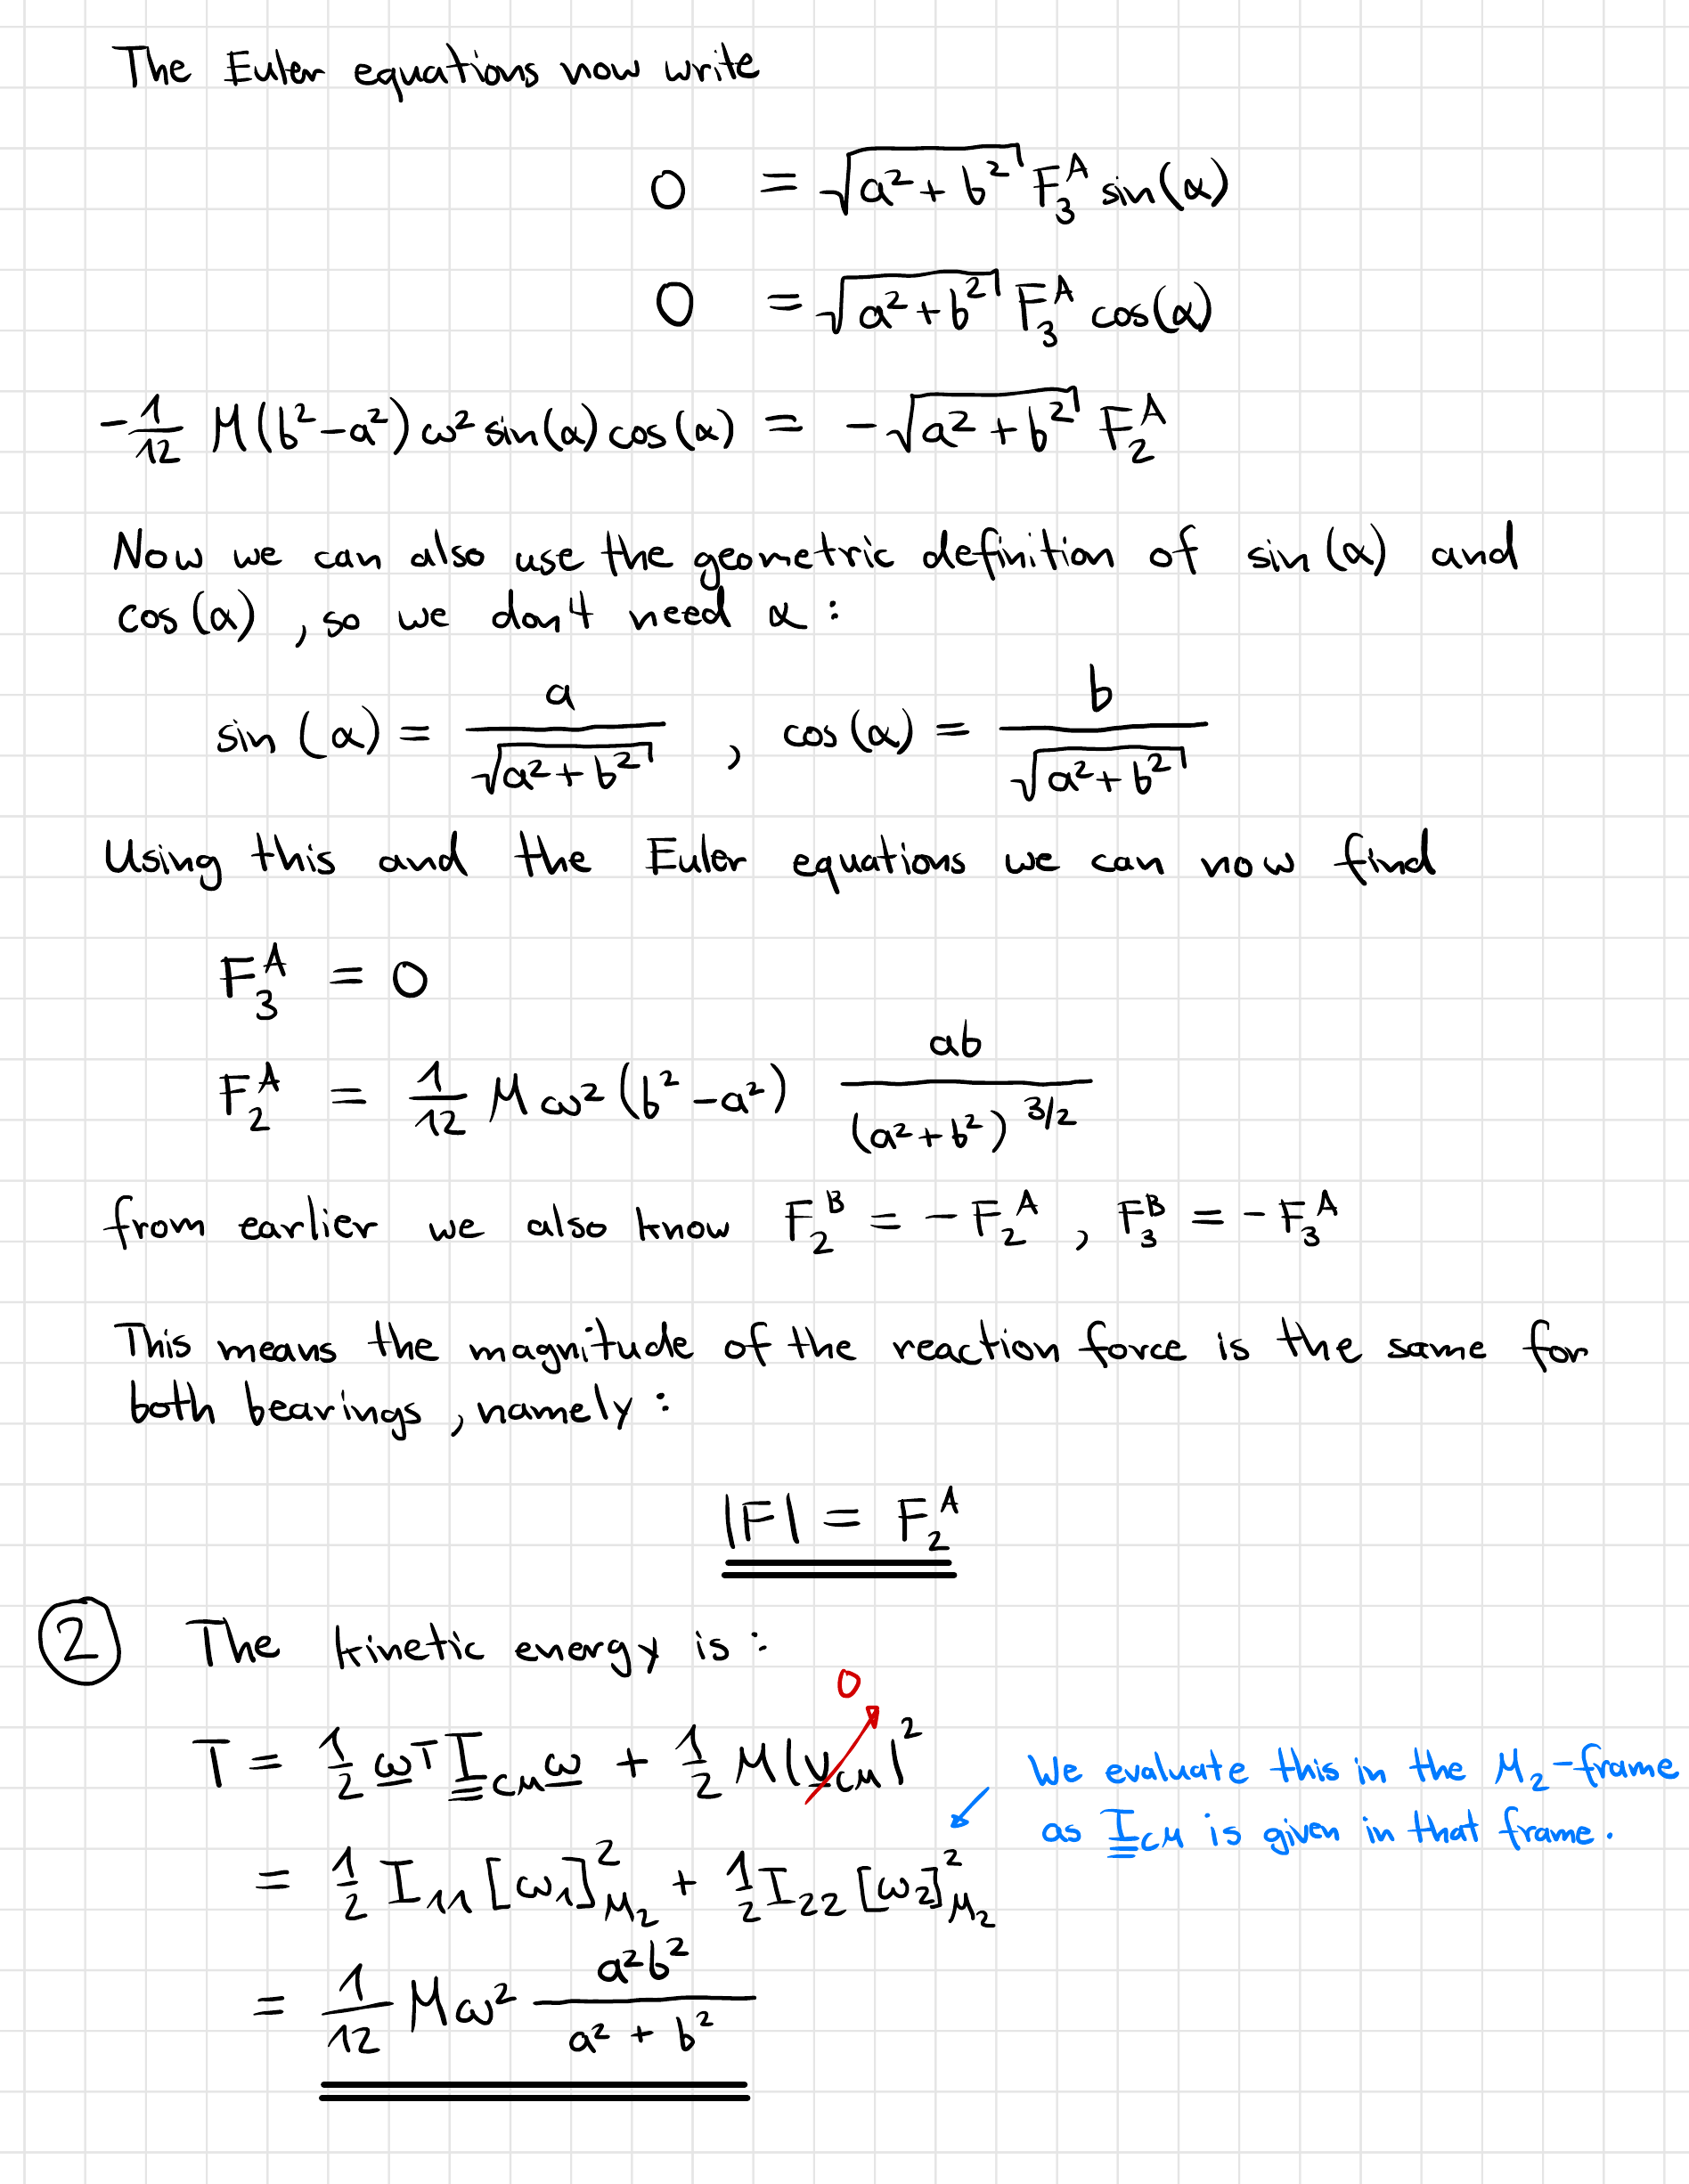 The Euler equations now write
0 = √(a² + b²) F₃ᴬ sin(α)
0 = √(a² + b²) F₃ᴬ cos(α)
-1/12 M(b² - a²) ω² sin(α) cos(α) = -√(a² + b²) F₂ᴬ
Now we can also use the geometric definition of sin(α) and
cos(α), so we don't need α:
sin(α) = a/√(a² + b²) , cos(α) = b/√(a² + b²)
Using this and the Euler equations we can now find
F₃ᴬ = 0
F₂ᴬ = 1/12 Mω²(b² - a²) ab/(a² + b²)^(3/2)
from earlier we also know F₂ᴮ = -F₂ᴬ , F₃ᴮ = -F₃ᴬ
This means the magnitude of the reaction force is the same for
both bearings, namely:
|F| = F₂ᴬ
② The kinetic energy is:
0
T = 1/2 ωᵀ I_CM ω + 1/2 M|v_CM|²
We evaluate this in the M₂-frame
as I_CM is given in that frame.
= 1/2 I₁₁ [ω₁]²_M₂ + 1/2 I₂₂ [ω₂]²_M₂
= 1/12 Mω² a²b²/(a² + b²)